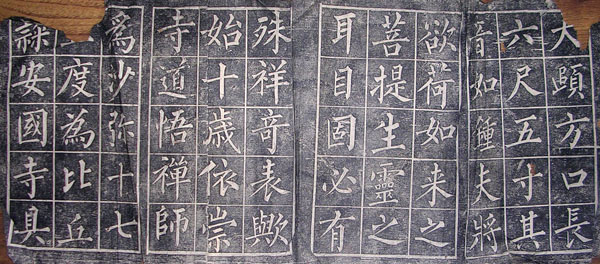 大頥方口長
六尺五寸其
音如鍾夫將
欲荷如来之
菩提生靈之
耳目固必有
殊祥竒表歟
始十歲依崇
寺道悟禪師
爲沙弥十七
度為比丘
隸安國寺具